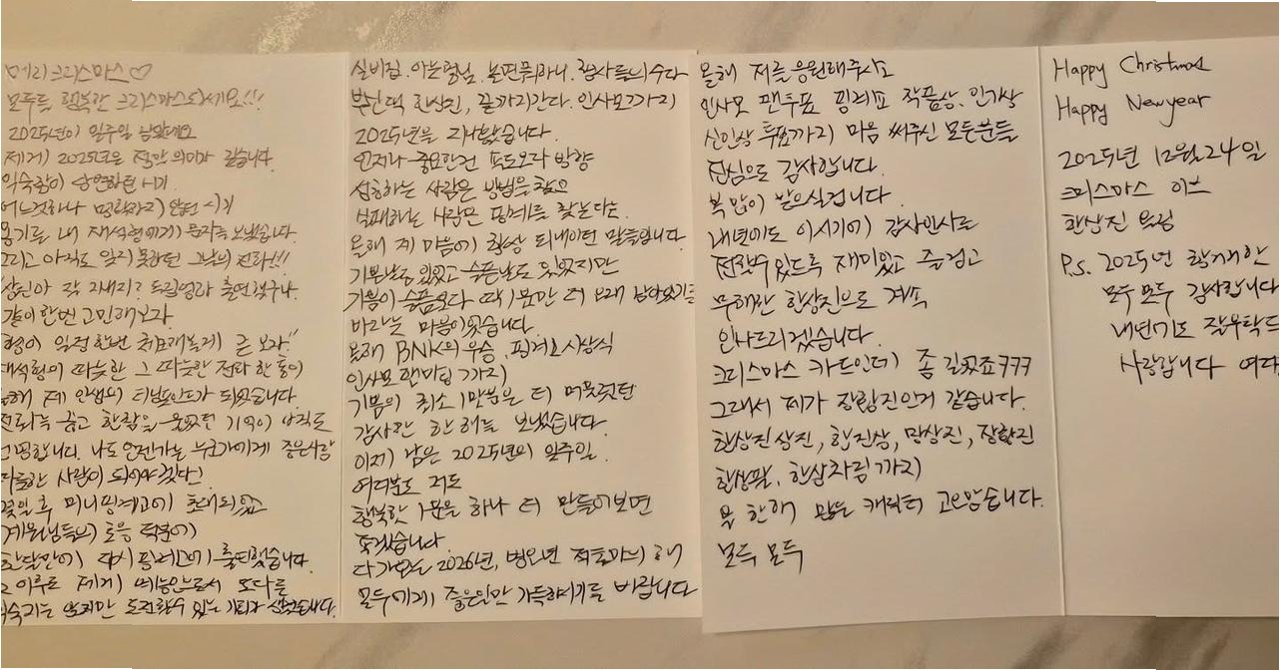 메리크리스마스♡
모두들 행복한 크리스마스되세요!!!
2025년이 일주일 남았네요
제게 2025년은 정말 의미가 깊습니다.
익숙함이 당연하던 시기
어느것하나 명확하지 않던 시기
용기를 내 재석형에게 문자를 보냈습니다.
그리고 아직도 잊지못하던 그날의 전화!!!
상진아 잘 지내지?
같이한번 고민해보자
형이 일정한번 체크해볼게 곧 보자"
재석형의 따뜻한 그 따뜻한 전화 한 통이
올해 제 인생의 터닝포인트가 되었습니다
전화를 끊고 한참을 울었던 기억이 아직도
선명합니다. 나도 언젠가는 누군가에게 좋은사람
따뜻한 사람이 되어야겠다!
몇일 후 미니핑계고에 초대되었고
계원님들의 호응 덕분에
한달만에 다시 핑계고에 출연했습니다.
그 이후로 제게 예능인으로서 또다른
익숙치는 않지만 도전할수 있는 기회가 생겼습니다.
실비집. 아는형님. 놀면뭐하니. 집사들의수다
부산댁 한상진, 끝까지간다. 인사모까지
2025년을 지내왔습니다.
언제나 중요한건 속도보다 방향
성취하는 사람은 방법을 찾고
실패하는 사람은 핑계를 찾는다는
올해 제 마음에 항상 되내이던 말들입니다
기쁜날도 있었고 슬픈날도 있었지만
기쁨이 슬픔보다 딱 1분만 더 오래 남아있기를
바라는 마음이었습니다
올해 BNK의 우승, 핑계고시상식
인사모 팬미팅까지
기쁨이 최소 1만분은 더 머물렀던
감사한 한 해를 보냈습니다.
이제 남은 2025년의 일주일
여러분도 저도
행복한 1분을 하나 더 만들어보면
좋겠습니다
다가오는 2026년, 병오년 적토마의 해
모두에게 좋은일만 가득하시기를 바랍니다
올해 저를응원해주시고
인사모 팬투표 핑계고 작품상. 인기상
신인상 투표까지 마음 써주신 모든분들
진심으로 감사합니다.
복 많이 받으실겁니다.
내년에도 이시기에 감사인사를
전할수있도록 재미있고 즐겁고
무해한 한상진으로 계속
인사드리겠습니다.
크리스마스 카드인데 좀 길었죠ㅋㅋㅋ
그래서 제가 장항진인거 같습니다.
한상진상진, 함진상, 망상진, 장항진
한상팔, 한삼자림까지
올 한해 만든 캐릭터 고마웠습니다.
모두 모두
Happy Christmas
Happy New year
2025년 12월 24일
크리스마스 이브
한상진 올림
P.s. 2025년 함께한
모두 모두 감사합니다
내년에도 잘부탁드
사랑합니다